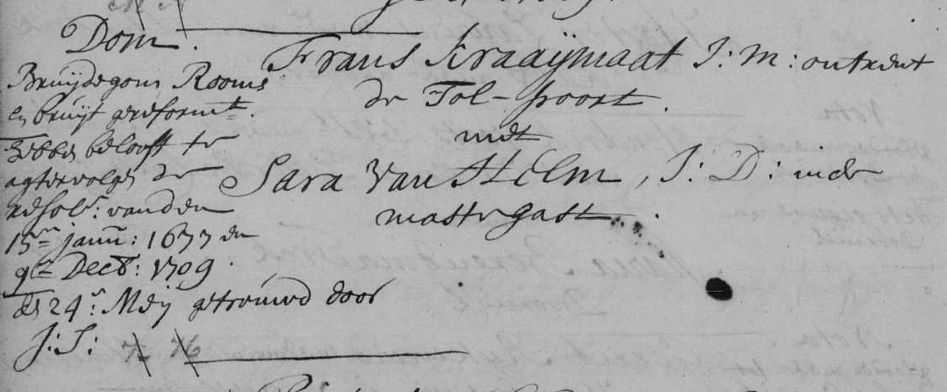 Dom.
Bruijdegom Rooms
en bruijt gereformt.
hebben belooft te
agtervolgen de
resolt: vanden
15en janu: 1677 en
9en Decb: 1709.
den 24n Meij getrouwd door
J: S:
Frans Kraaijmaat J: M: ontrent
de Tol-poort.
met
Sara Van Helm, J: D: inde
mastegast.